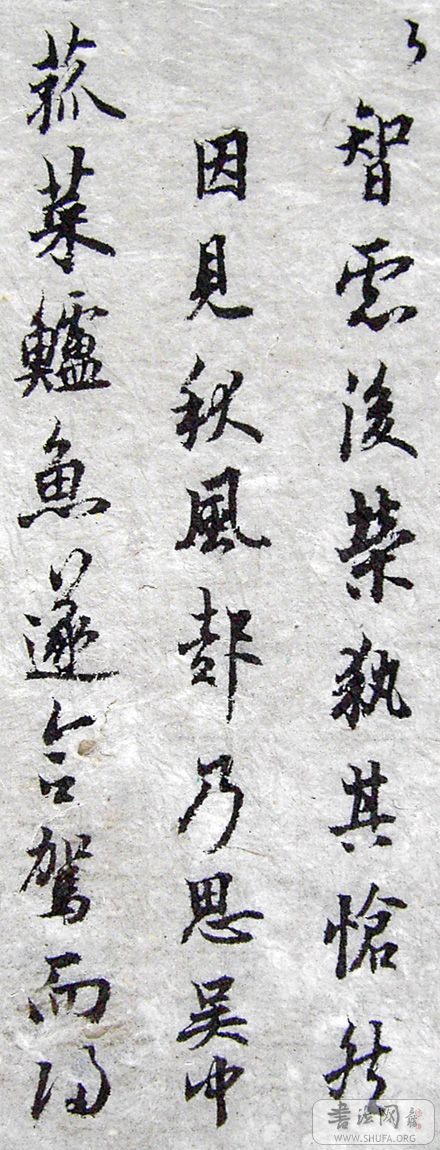 智慮後榮執其愴然
因見秋風起乃思吳中
菰菜鱸魚遂命駕而歸
書法网
WWW.SHUFA.ORG